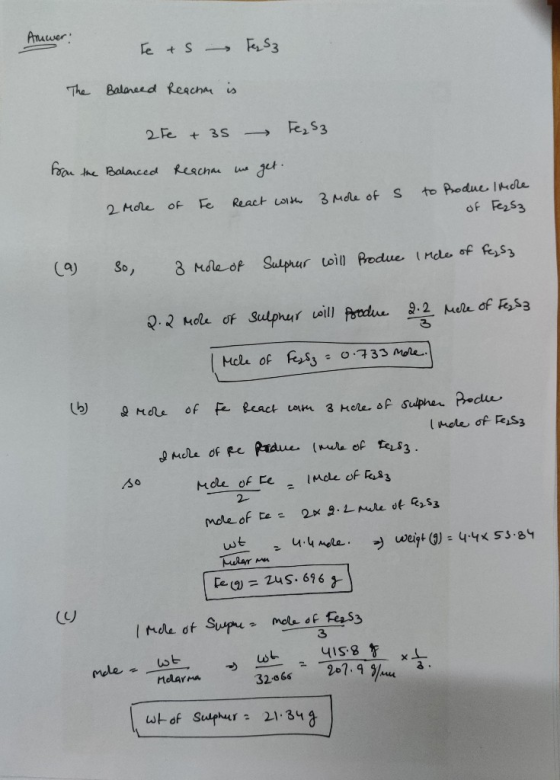 Answer:
Fe + S → Fe2S3
The Balanced Reaction is
2Fe + 3S → Fe2S3
from the Balanced Reaction we get.
2 Mole of Fe React with 3 Mole of S to Produce 1 Mole
of Fe2S3
(a) So, 3 Mole of Sulphur will Produce 1 Mole of Fe2S3
2.2 Mole of Sulphur will Produce 2.2/3 Mole of Fe2S3
Mole of Fe2S3 = 0.733 Mole.
(b) 2 Mole of Fe React with 3 Mole of Sulpher Produce
1 Mole of Fe2S3
2 Mole of Fe Produce 1 mole of Fe2S3.
so Mole of Fe/2 = 1 Mole of Fe2S3
mole of Fe = 2 x 2.2 mole of Fe2S3
wt/Molar ma = 4.4 mole. ⇒ weight (g) = 4.4 x 53.84
Fe (g) = 245.696 g
(c) 1 Mole of Sulpur = mole of Fe2S3/3
mole = wt/Molarma ⇒ wt/32.066 = 415.8 g/207.9 g/mole x 1/3.
wt of Sulphur = 21.34 g